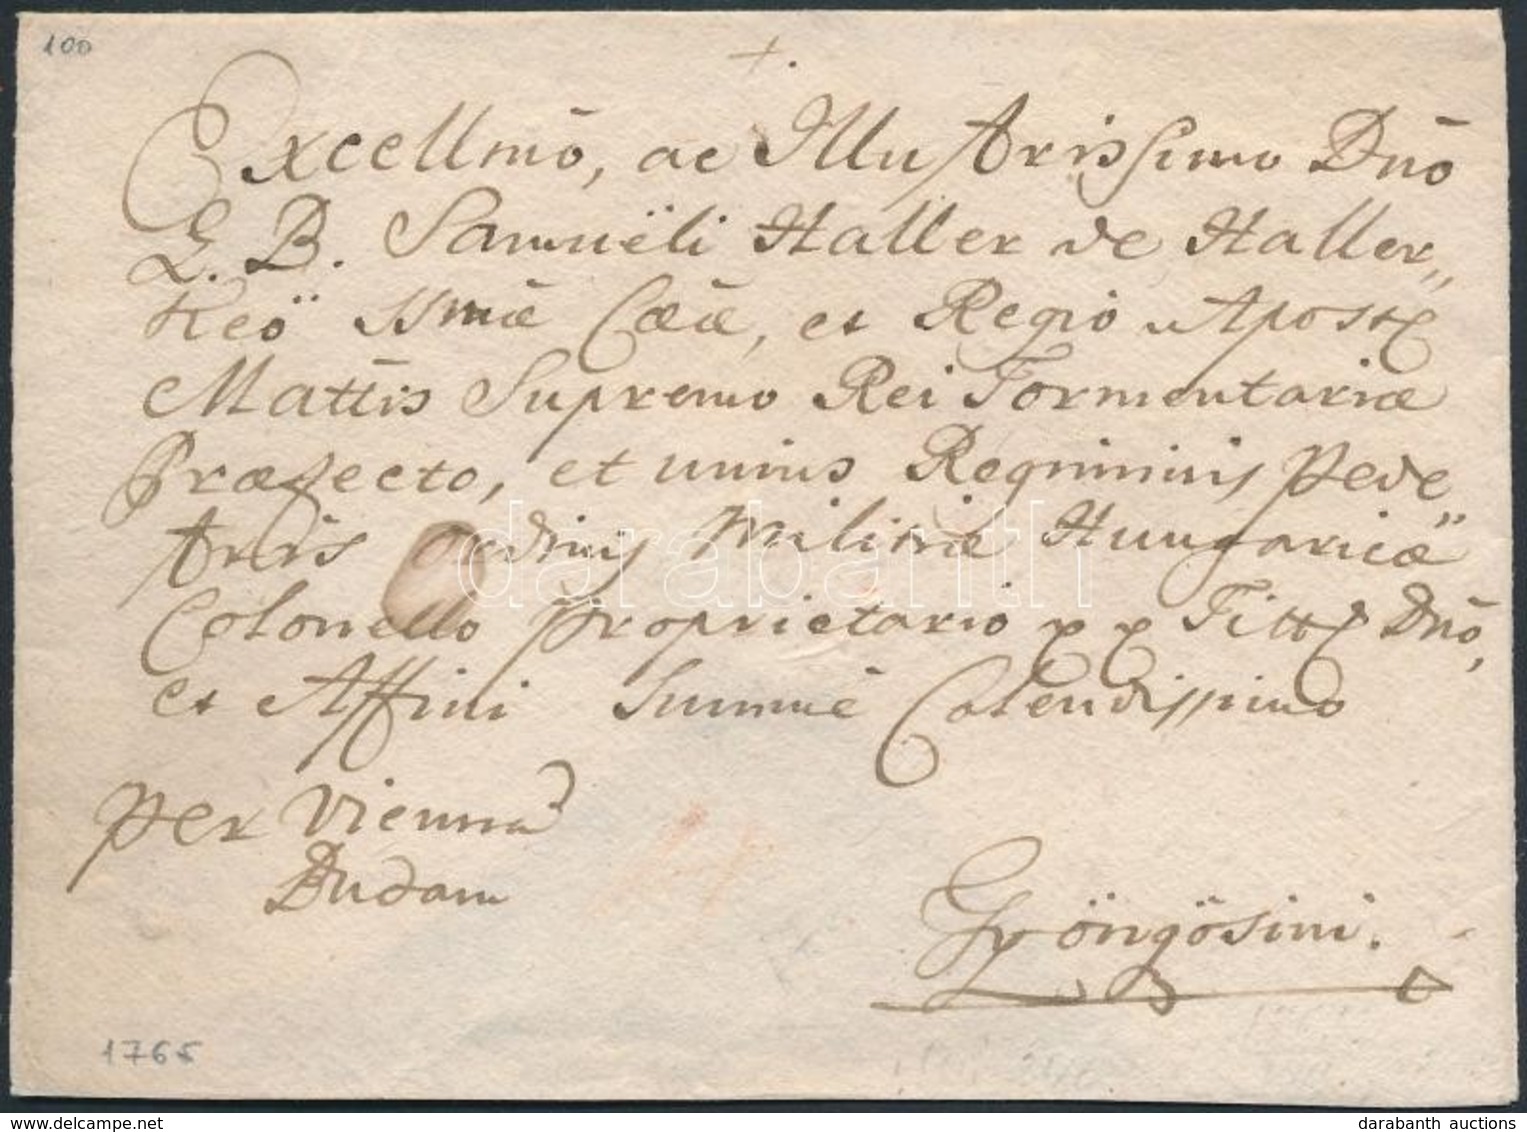 100
+.
Excellmō, ac Illustrissimo Dnō
L. B. Samuëli Haller de Haller„
Keö SSmǣ Cæǣ, et Regio Apost̄
Mattīs Supremo Rei Tormentariæ
Præfecto, et unius Regiminis Pede„
stris Ordinis Militiæ Hungaricæ
Colonello Proprietario Titt Dnō,
et Affini Summe Colendissimo
per Viennā
Budam
Gyöngösini.
1765
darabanth
darabanth auctions